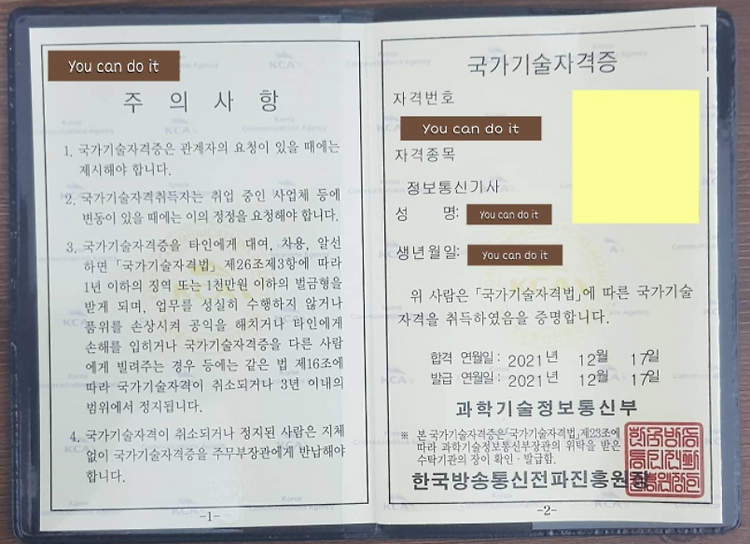 You can do it
주 의 사 항
1. 국가기술자격증은 관계자의 요청이 있을 때에는
제시해야 합니다.
2. 국가기술자격취득자는 취업 중인 사업체 등에
변동이 있을 때에는 이의 정정을 요청해야 합니다.
3. 국가기술자격증을 타인에게 대여, 차용, 알선
하면 「국가기술자격법」 제26조제3항에 따라
1년 이하의 징역 또는 1천만원 이하의 벌금형을
받게 되며, 업무를 성실히 수행하지 않거나
품위를 손상시켜 공익을 해치거나 타인에게
손해를 입히거나 국가기술자격증을 다른 사람
에게 빌려주는 경우 등에는 같은 법 제16조에
따라 국가기술자격이 취소되거나 3년 이내의
범위에서 정지됩니다.
4. 국가기술자격이 취소되거나 정지된 사람은 지체
없이 국가기술자격증을 주무부장관에게 반납해야
합니다.
-1-
국가기술자격증
자격번호
You can do it
자격종목
정보통신기사
성 명: You can do it
생년월일: You can do it
위 사람은 「국가기술자격법」에 따른 국가기술
자격을 취득하였음을 증명합니다.
합격 연월일 : 2021년 12월 17일
발급 연월일 : 2021년 12월 17일
과학기술정보통신부
※ 본 국가기술자격증은 「국가기술자격법」 제23조에
따라 과학기술정보통신부장관의 위탁을 받은
수탁기관의 장이 확인 · 발급함.
한국방송통신전파진흥원장
-2-